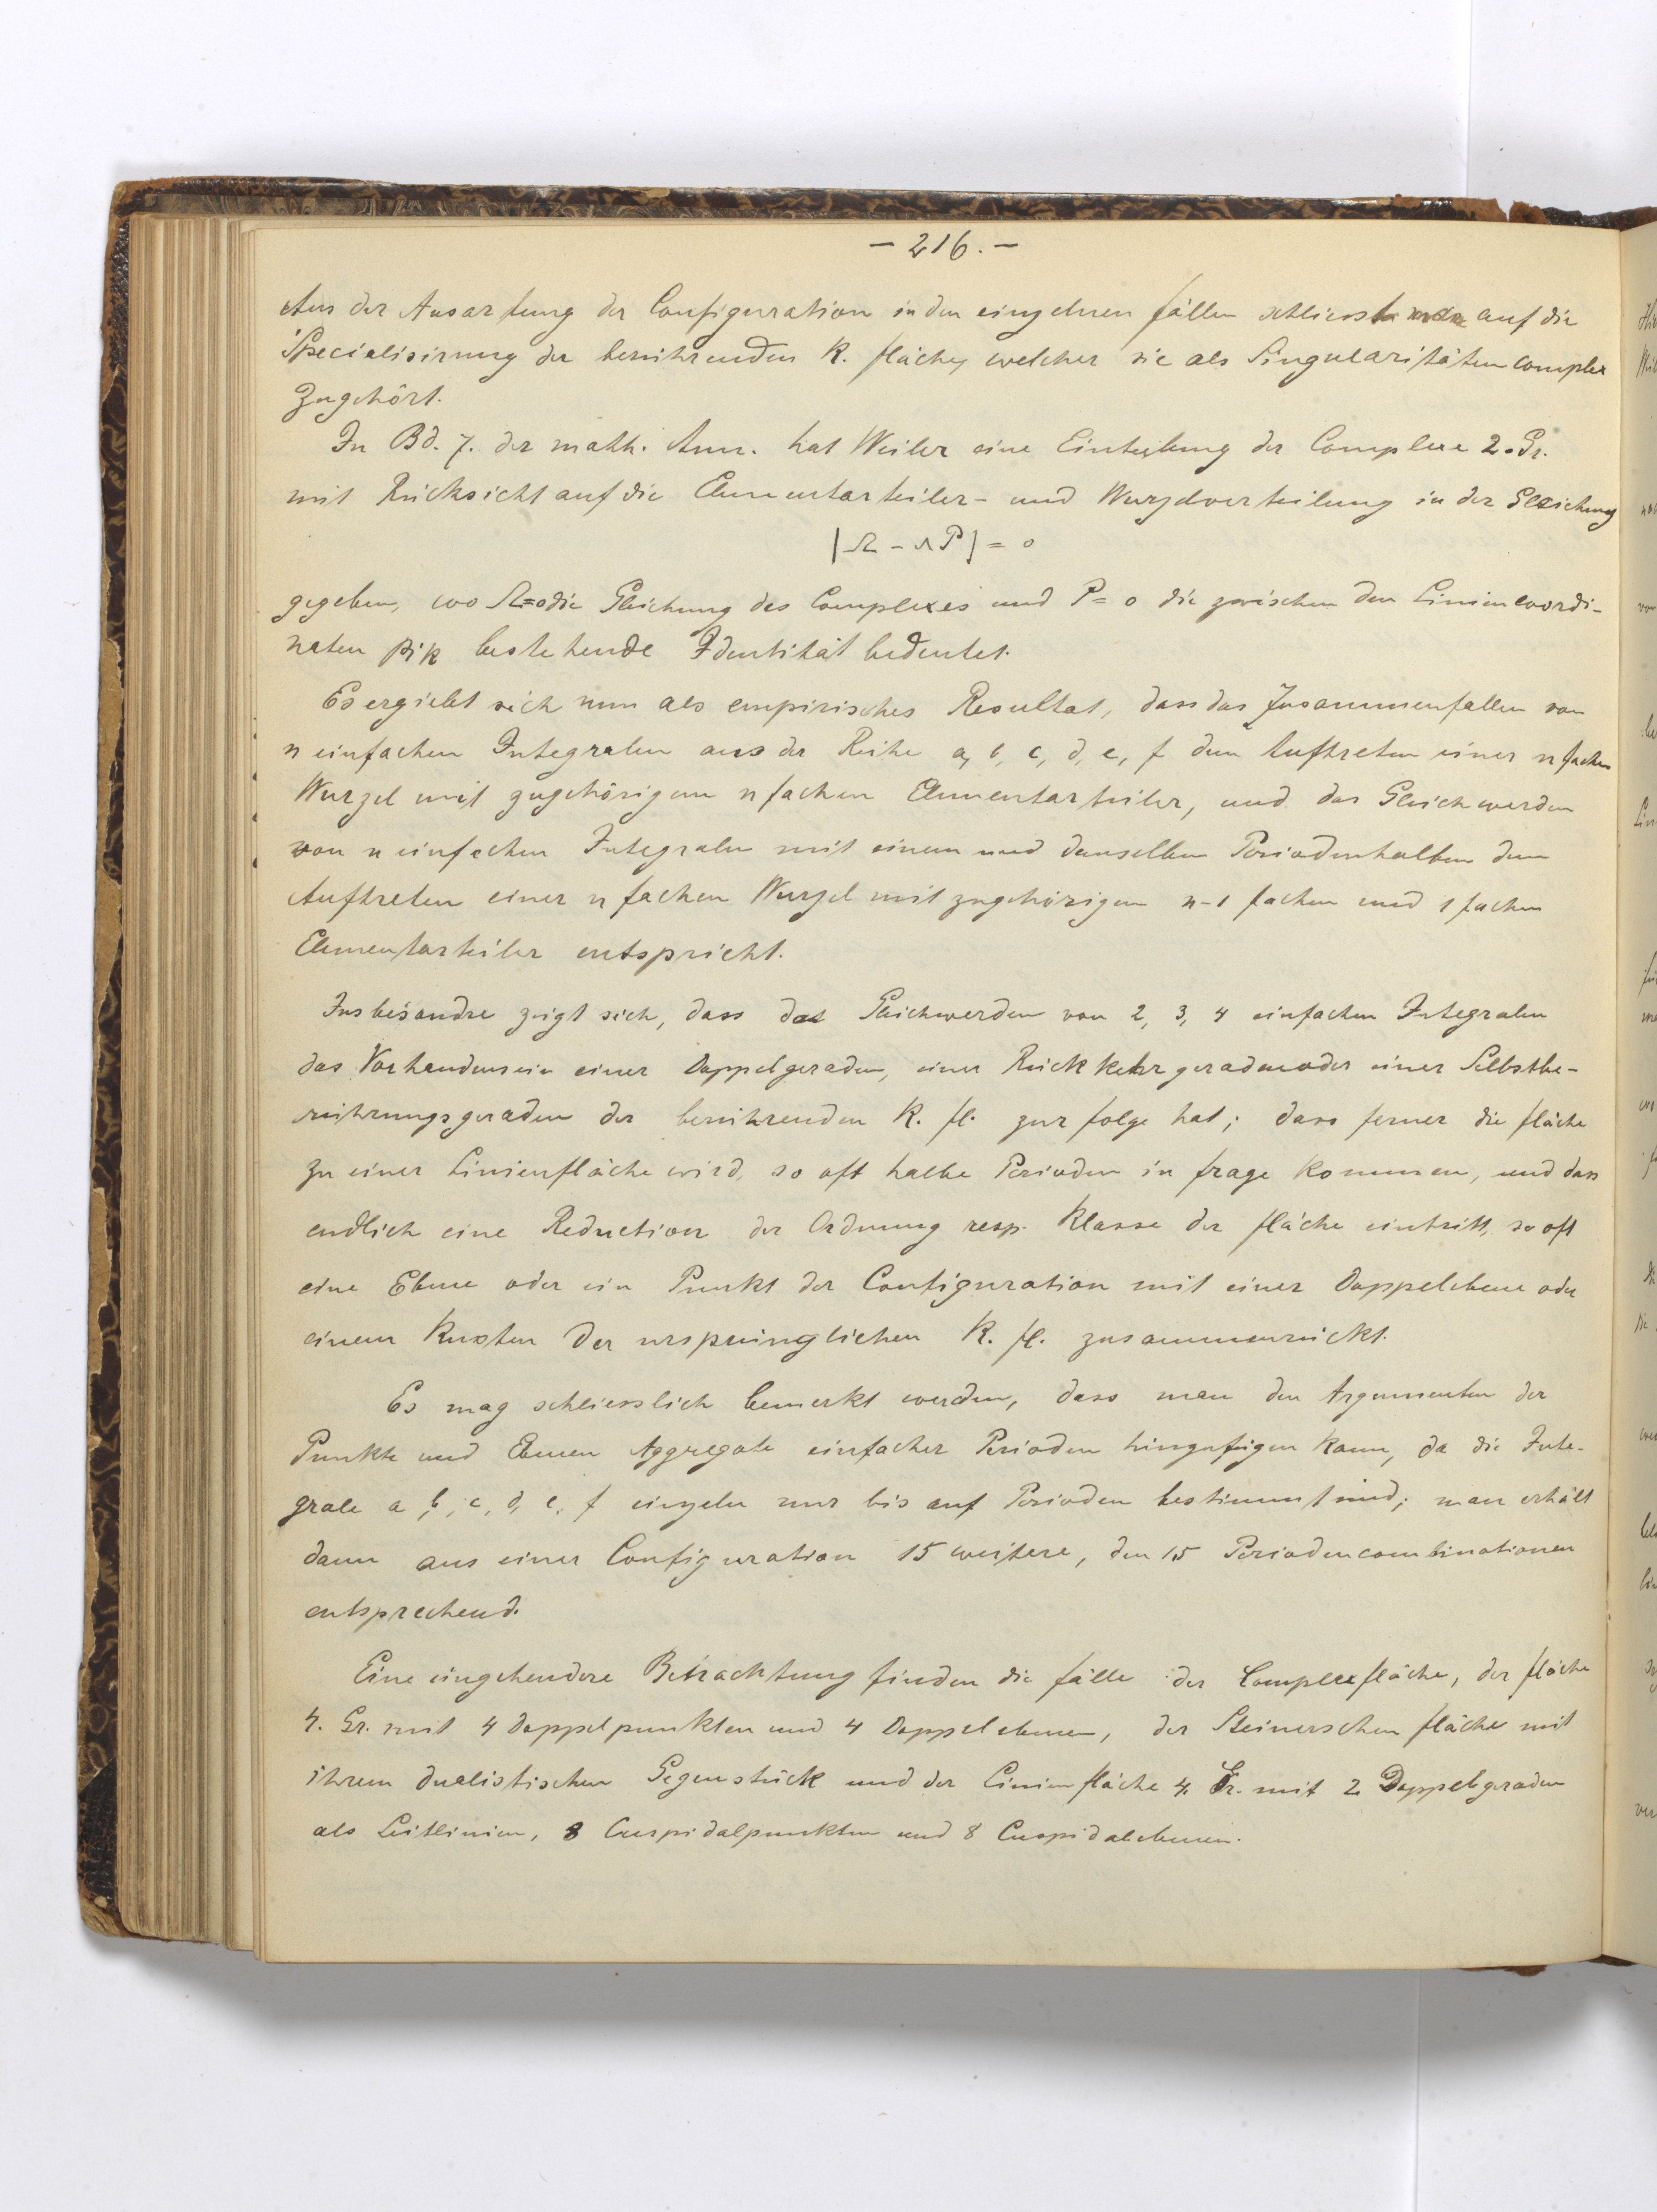 - 216. -
Aus der Ausartung der Configuration in den einzelnen Fällen schliesst man auf die
Specialisirung der berührenden K. fläche, welcher sie als Singularitätencomplex
zugehört.
In Bd. 7. der math. Ann. hat Weiler eine Einteilung der Complexe 2. Gr.
mit Rücksicht auf die Elementarteiler- und Wurzelverteilung in der Gleichung
|Ω - λP| = 0
gegeben, wo Ω=0 die Gleichung des Complexes und P = 0 die zwischen den Liniencoordi-
naten pik bestehende Identität bedeutet.
Es ergiebt sich nun als empirisches Resultat, dass das Zusammenfallen von
n einfachen Integralen aus der Reihe a, b, c, d, e, f dem Auftreten einer n fachen
Wurzel mit zugehörigem n fachen Elementarteiler, und das Gleichwerden
von n einfachen Integralen mit einem und demselben Periodenhalben dem
Auftreten einer n fachen Wurzel mit zugehörigem n-1 fachen und 1 fachen
Elementarteiler entspricht.
Insbesondre zeigt sich, dass das Gleichwerden von 2, 3, 4 einfachen Integralen
das Vorhandensein einer Doppelgeraden, einer Rückkehrgeraden oder einer Selbstbe-
rührungsgeraden der berührenden K. fl. zur folge hat; dass ferner die fläche
zu einer Linienfläche wird, so oft halbe Perioden in frage kommen, und dass
endlich eine Reduction der Ordnung resp. Klasse der fläche eintritt, so oft
eine Ebene oder ein Punkt der Configuration mit einer Doppelebene oder
einem Knoten der ursprünglichen K. fl. zusammenrückt.
Es mag schliesslich bemerkt werden, dass man den Argumenten der
Punkte und Ebenen Aggregate einfacher Perioden hinzufügen kann, da die Inte-
grale a, b, c, d, e, f einzeln nur bis auf Perioden bestimmt sind; man erhält
dann aus einer Configuration 15 weitere, den 15 Periodencombinationen
entsprechend.
Eine eingehendere Betrachtung finden die fälle der Complexfläche, der fläche
4. Gr. mit 4 Doppelpunkten und 4 Doppelebenen, der Steinerschen fläche mit
ihrem dualistischen Gegenstück und der Linienfläche 4. Gr. mit 2 Doppelgeraden
als Leitlinien, 8 Cuspidalpunkten und 8 Cuspidalebenen.